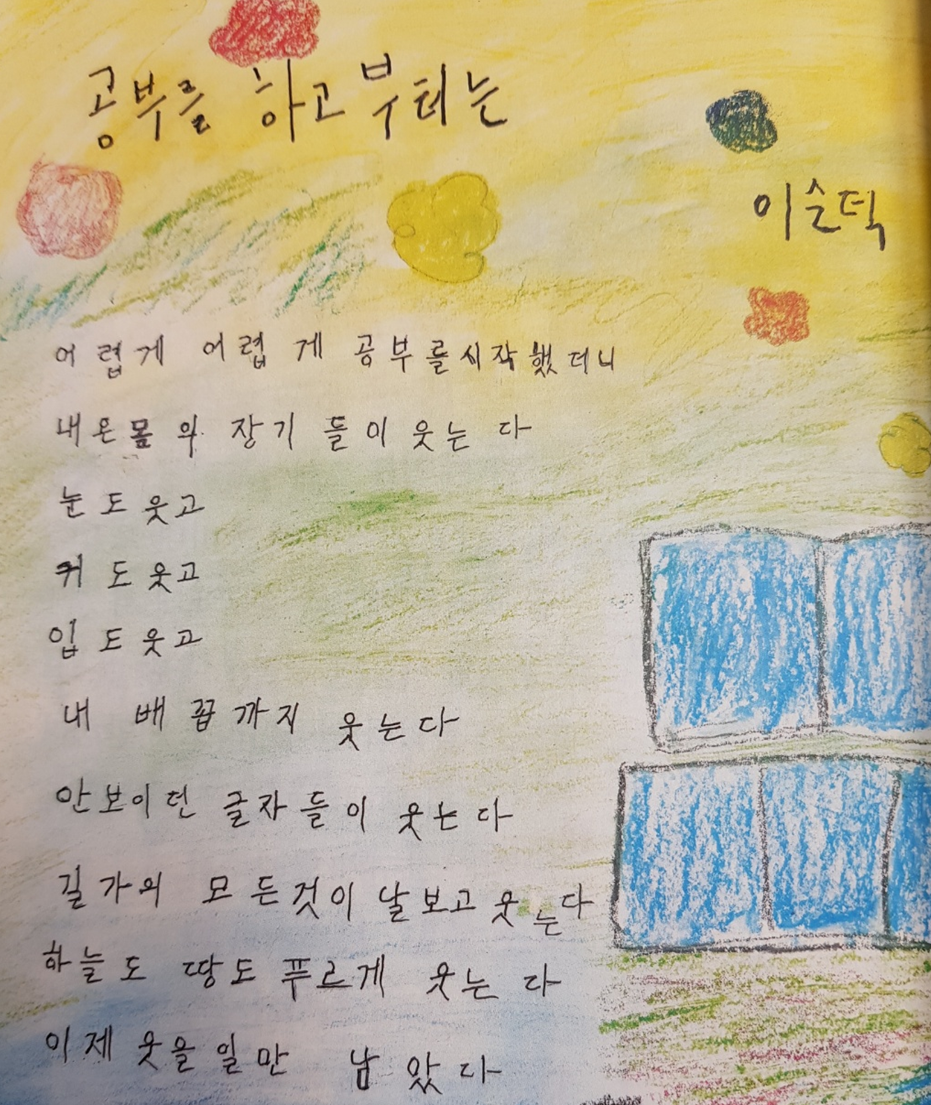 공부를 하고부터는
이순덕
어렵게 어렵게 공부를시작했더니
내온몸의 장기들이 웃는다
눈도웃고
귀도웃고
입도웃고
내 배꼽까지 웃는다
안보이던 글자들이 웃는다
길가의 모든것이 날보고 웃는다
하늘도 땅도 푸르게 웃는다
이제 웃을일만 남았다